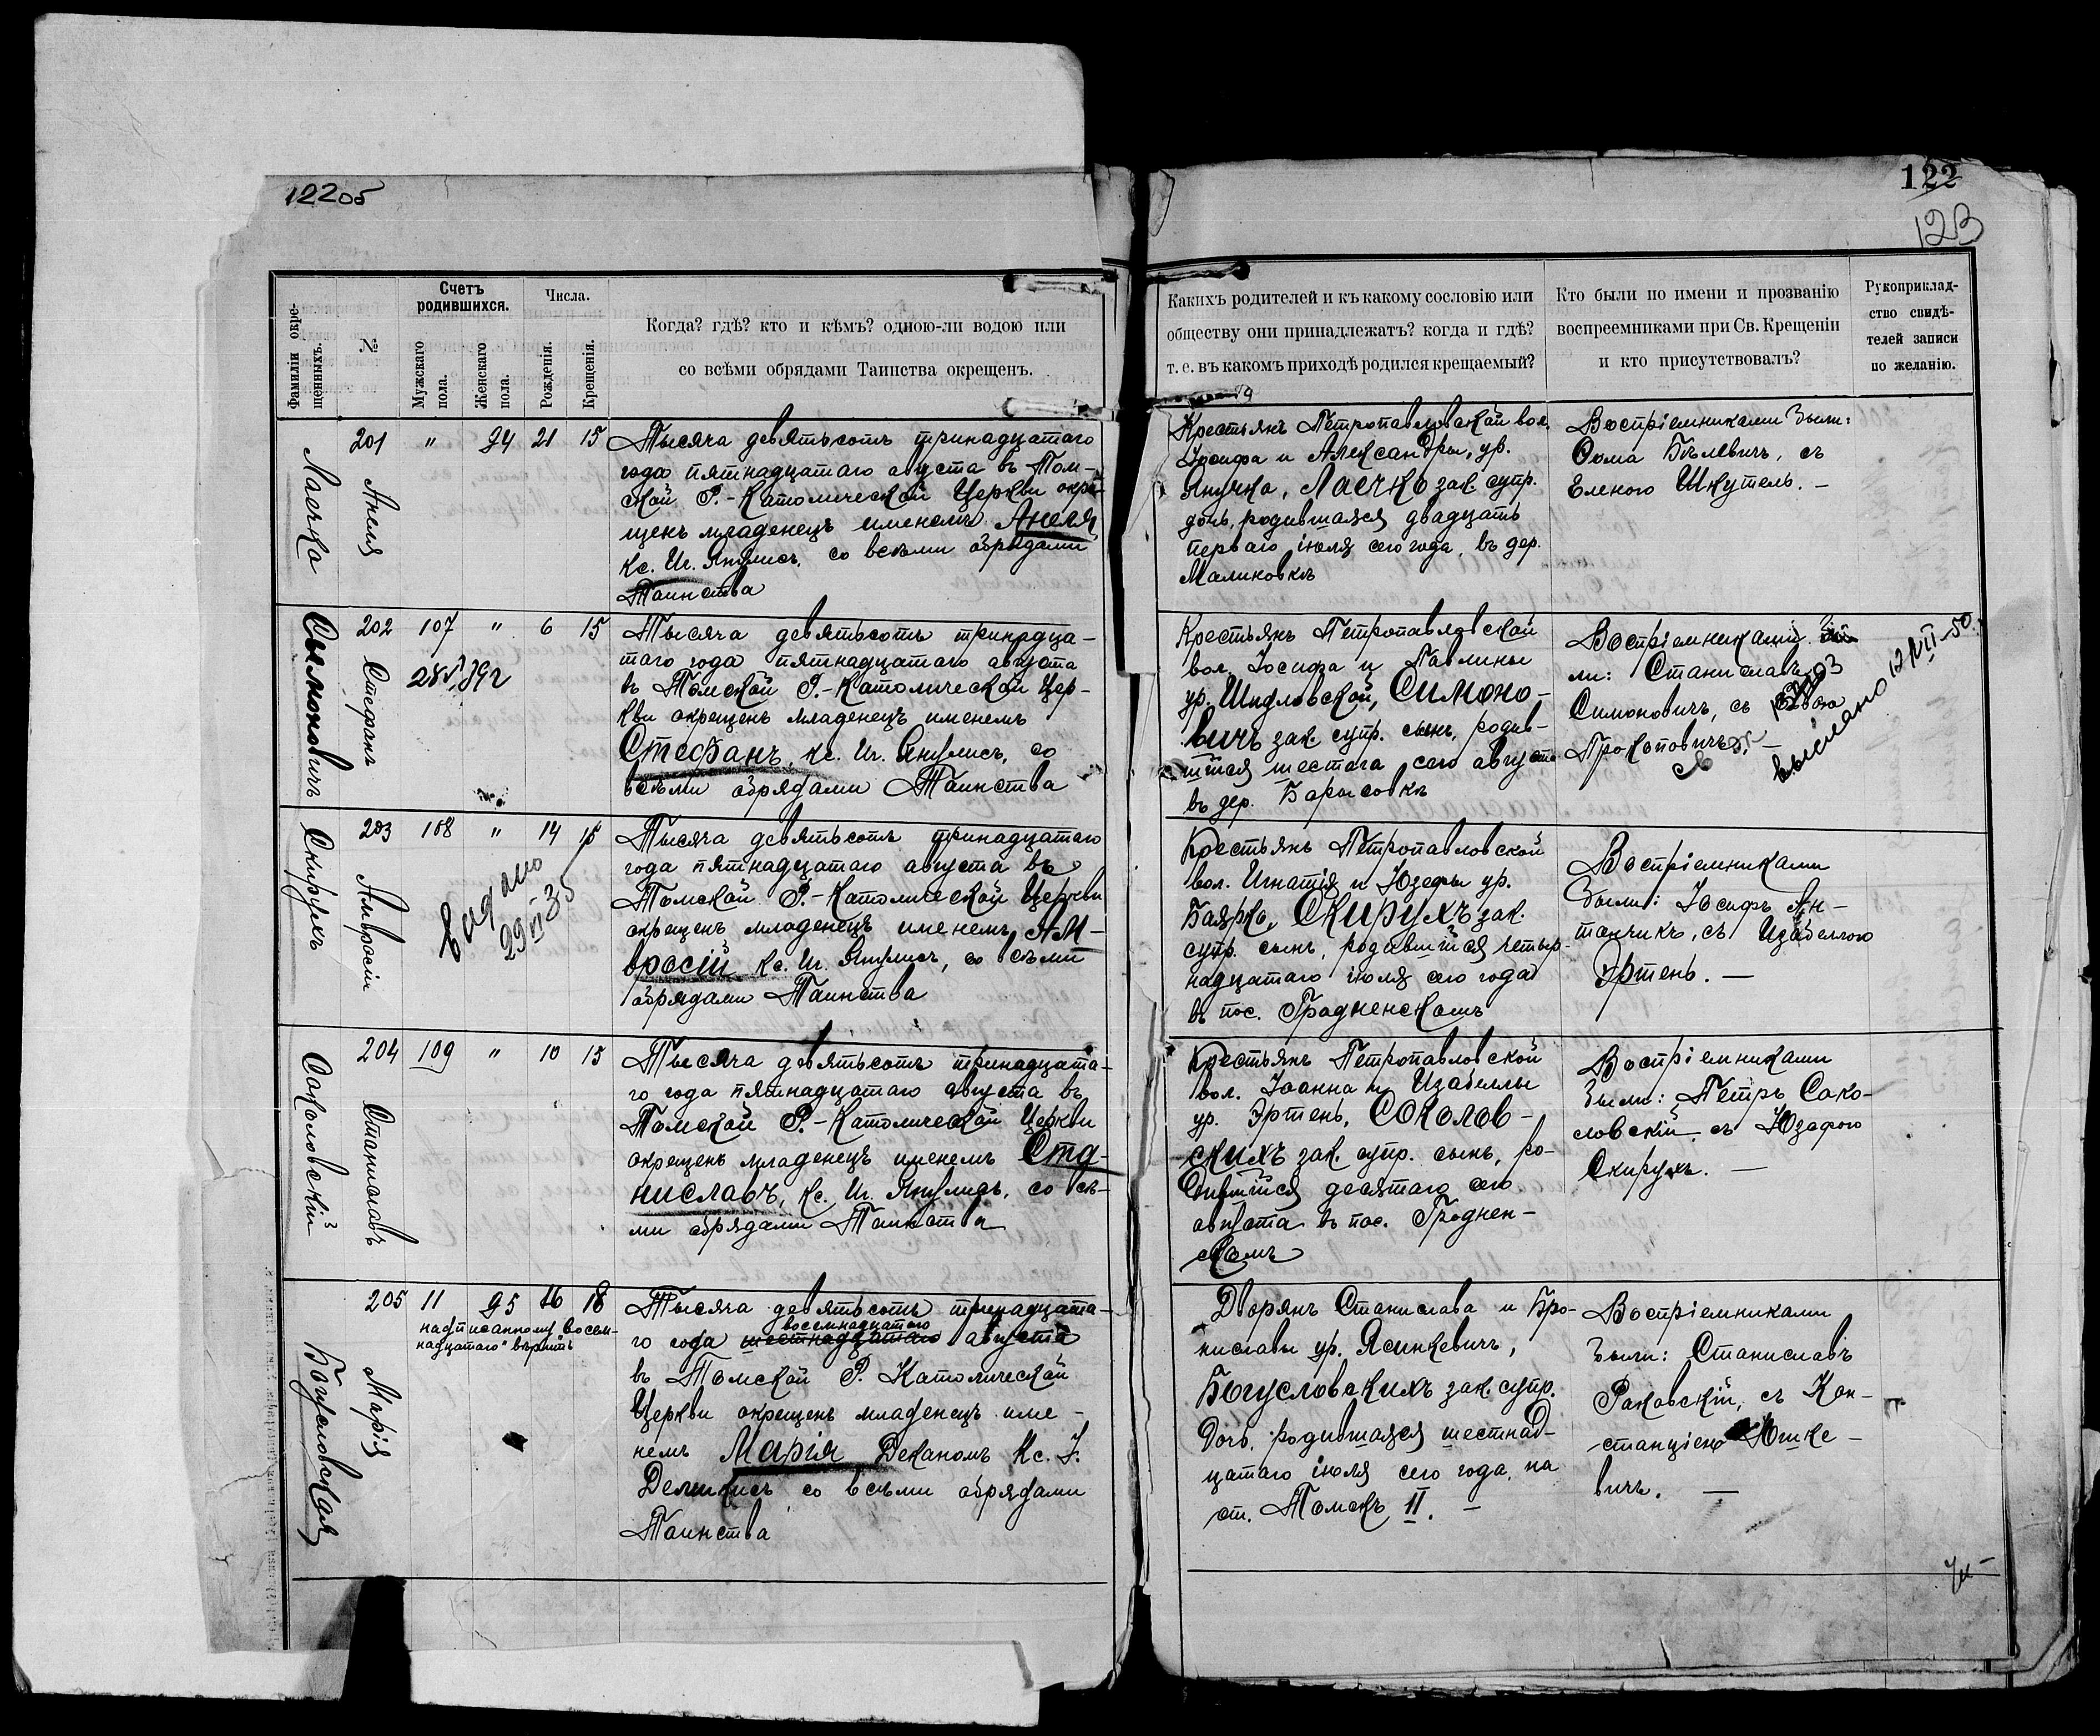 122об
Фамиліи окре-
щенныхъ.
№
Счетъ
родившихся.
Мужскаго
пола.
Женскаго
пола.
Числа.
Рожденія.
Крещенія.
Когда? гдѣ? кто и кѣмъ? одною-ли водою или
со всѣми обрядами Таинства окрещенъ.
Лаечка
201
Анеля
"
94
21
15
Тысяча девятьсотъ тринадцатаго
года пятнадцатаго августа въ Том-
ской Р.-Католической Церкви окре-
щенъ младенецъ именемъ Анеля
Кс. Иг. Янулисъ, со всѣми обрядами
Таинства
Сымоновичъ
202
Стефанъ
107
"
6
15
Тысяча девятьсотъ тринадца-
таго года пятнадцатаго августа
въ Томской Р.-Католической Цер-
кви окрещенъ младенецъ именемъ
Стефанъ, Кс. Иг. Янулисъ, со
всѣми обрядами Таинства
Скирухъ
203
Амвросій
108
"
14
15
Выдано
29 VI 35
Тысяча девятьсотъ тринадцатаго
года пятнадцатаго августа въ
Томской Р.-Католической Церкви
окрещенъ младенецъ именемъ Ам-
вросій Кс. Иг. Янулисъ, со всѣми
обрядами Таинства
Соколовскій
204
Станиславъ
109
"
10
15
Тысяча девятьсотъ тринадцата-
го года пятнадцатаго августа въ
Томской Р.-Католической Церкви
окрещенъ младенецъ именемъ Ста-
ниславъ, Кс. Иг. Янулисъ, со всѣ-
ми обрядами Таинства
Богусловская
205
Марія
11
95
16
18
надписанному "восем-
надцатаго" вѣрить
Тысяча девятьсотъ тринадцата-
восемнадцатаго
го года шестнадцатаго августа
въ Томской Р. Католической
Церкви окрещенъ младенецъ име-
немъ Марія Деканомъ Кс. I.
Демикисъ со всѣми обрядами
Таинства
122
123
Какихъ родителей и къ какому сословію или
обществу они принадлежатъ? когда и гдѣ?
т. е. въ какомъ приходѣ родился крещаемый?
Кто были по имени и прозванію
воспреемниками при Св. Крещеніи
и кто присутствовалъ?
Рукоприклад-
ство свидѣ-
телей записи
по желанію.
Крестьянъ Петропавловской вол.
Іосифа и Александры, ур.
Янучка, Лаечко зак. супр.
дочь, родившаяся двадцать
перваго іюля сего года, въ дер.
Маликовкѣ
Воспріемниками были:
Ѳома Бѣлевичъ, съ
Еленою Шкутель. —
Крестьянъ Петропавловской
вол. Іосифа и Павлины
ур. Шидловской, Симоно-
вичъ зак. супр. сынъ, родив-
шійся шестаго сего августа
въ дер. Барысовкѣ
Воспріемниками
ли: Станиславъ
Симоновичъ, съ
Прокоповичъ. —
выслано 12/VII-50
Крестьянъ Петропавловской
вол. Игнатія и Юзефы ур.
Баярко, Скирухъ зак.
супр. сынъ, родившійся четыр-
надцатаго іюля сего года
въ пос. Гродненскомъ
Воспріемниками
были: Іосифъ Ан-
тончикъ, съ Изабеллою
Эртень. —
Крестьянъ Петропавловской
вол. Іоанна и Изабеллы
ур. Эртень, Соколов-
скихъ зак. супр. сынъ, ро-
дившійся десятаго сего
августа въ пос. Гроднен-
скомъ
Воспріемниками
были: Петръ Соко-
ловскій, съ Юзефою
Скирухъ. —
Дворянъ Станислава и Бро-
ниславы ур. Ясинкевичъ,
Богусловскихъ зак. супр.
дочь, родившаяся шестнад-
цатаго іюля сего года, на
ст. Томскъ II. —
Воспріемниками
были: Станиславъ
Раковскій, съ Кон-
станціею Юшке-
вичъ. —